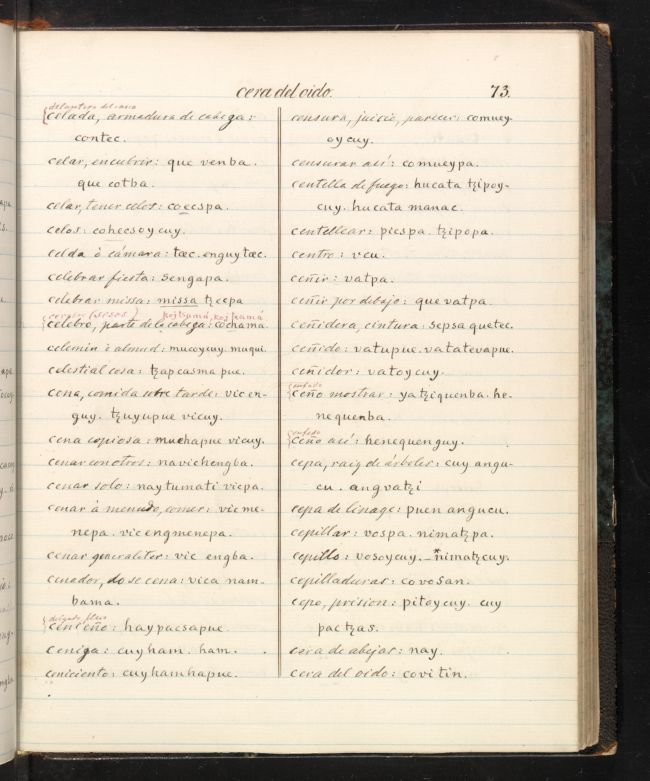 cera del oido. 73.
delantera del casco
celada, armadura de cabeça:
contec.
celar, encubrir: que venba.
que cotba.
celar, tener celos: coecspa.
celos: cohecsoycuy.
celda ò cámara: tæc. enguytæc.
celebrar fiesta: sengapa.
celebrar missa: missa tzecpa
cerebro (sesos) kojtsumá, kojtzamá
celebro, parte de la cabeça: cochama.
celemin ò almud: mucoycuy. muqui.
celestial cosa: tzapcasma pue.
cena, comida sobre tarde: vicen-
guy. tzuyupue vicuy.
cena copiosa: muchapue vicuy.
cenar con otros: navichengba.
cenar solo: naytumati vicpa.
cenar á menudo, comer: vicme-
nepa. vicengmenepa.
cenar generaliter: vic engba.
cenador, do se cena: vica nam-
bama.
delgado, flaco
cenceño: haypacsapue.
ceniça: cuyham. ham.
ceniciento: cuyhamhapue.
censura, juicio, parecer: comuey-
oycuy.
censurar así: comueypa.
centella de fuego: hucata tzipoy-
cuy. hucata manac.
centellear: picspa. tzipopa.
centro: vcu.
ceñir: vatpa.
ceñir por debajo: quevatpa.
ceñidera, cintura: sepsaquetec.
ceñido: vatupue. vatatevapue.
ceñidor: vatoycuy.
enfado
ceño mostrar: yatziquenba. he-
nequenba.
enfado
ceño así: henequenguy.
cepa, raiz de árboles: cuy angu-
cu. angvatzi
cepa de linage: puen angucu.
cepillar: vospa. nimatzpa.
cepillo: vosoycuy. - *nimatzcuy.
cepilladuras: covosan.
cepo, prision: pitoycuy. cuy
pactzas.
cera de abejas: nay.
cera del oido: covitin.